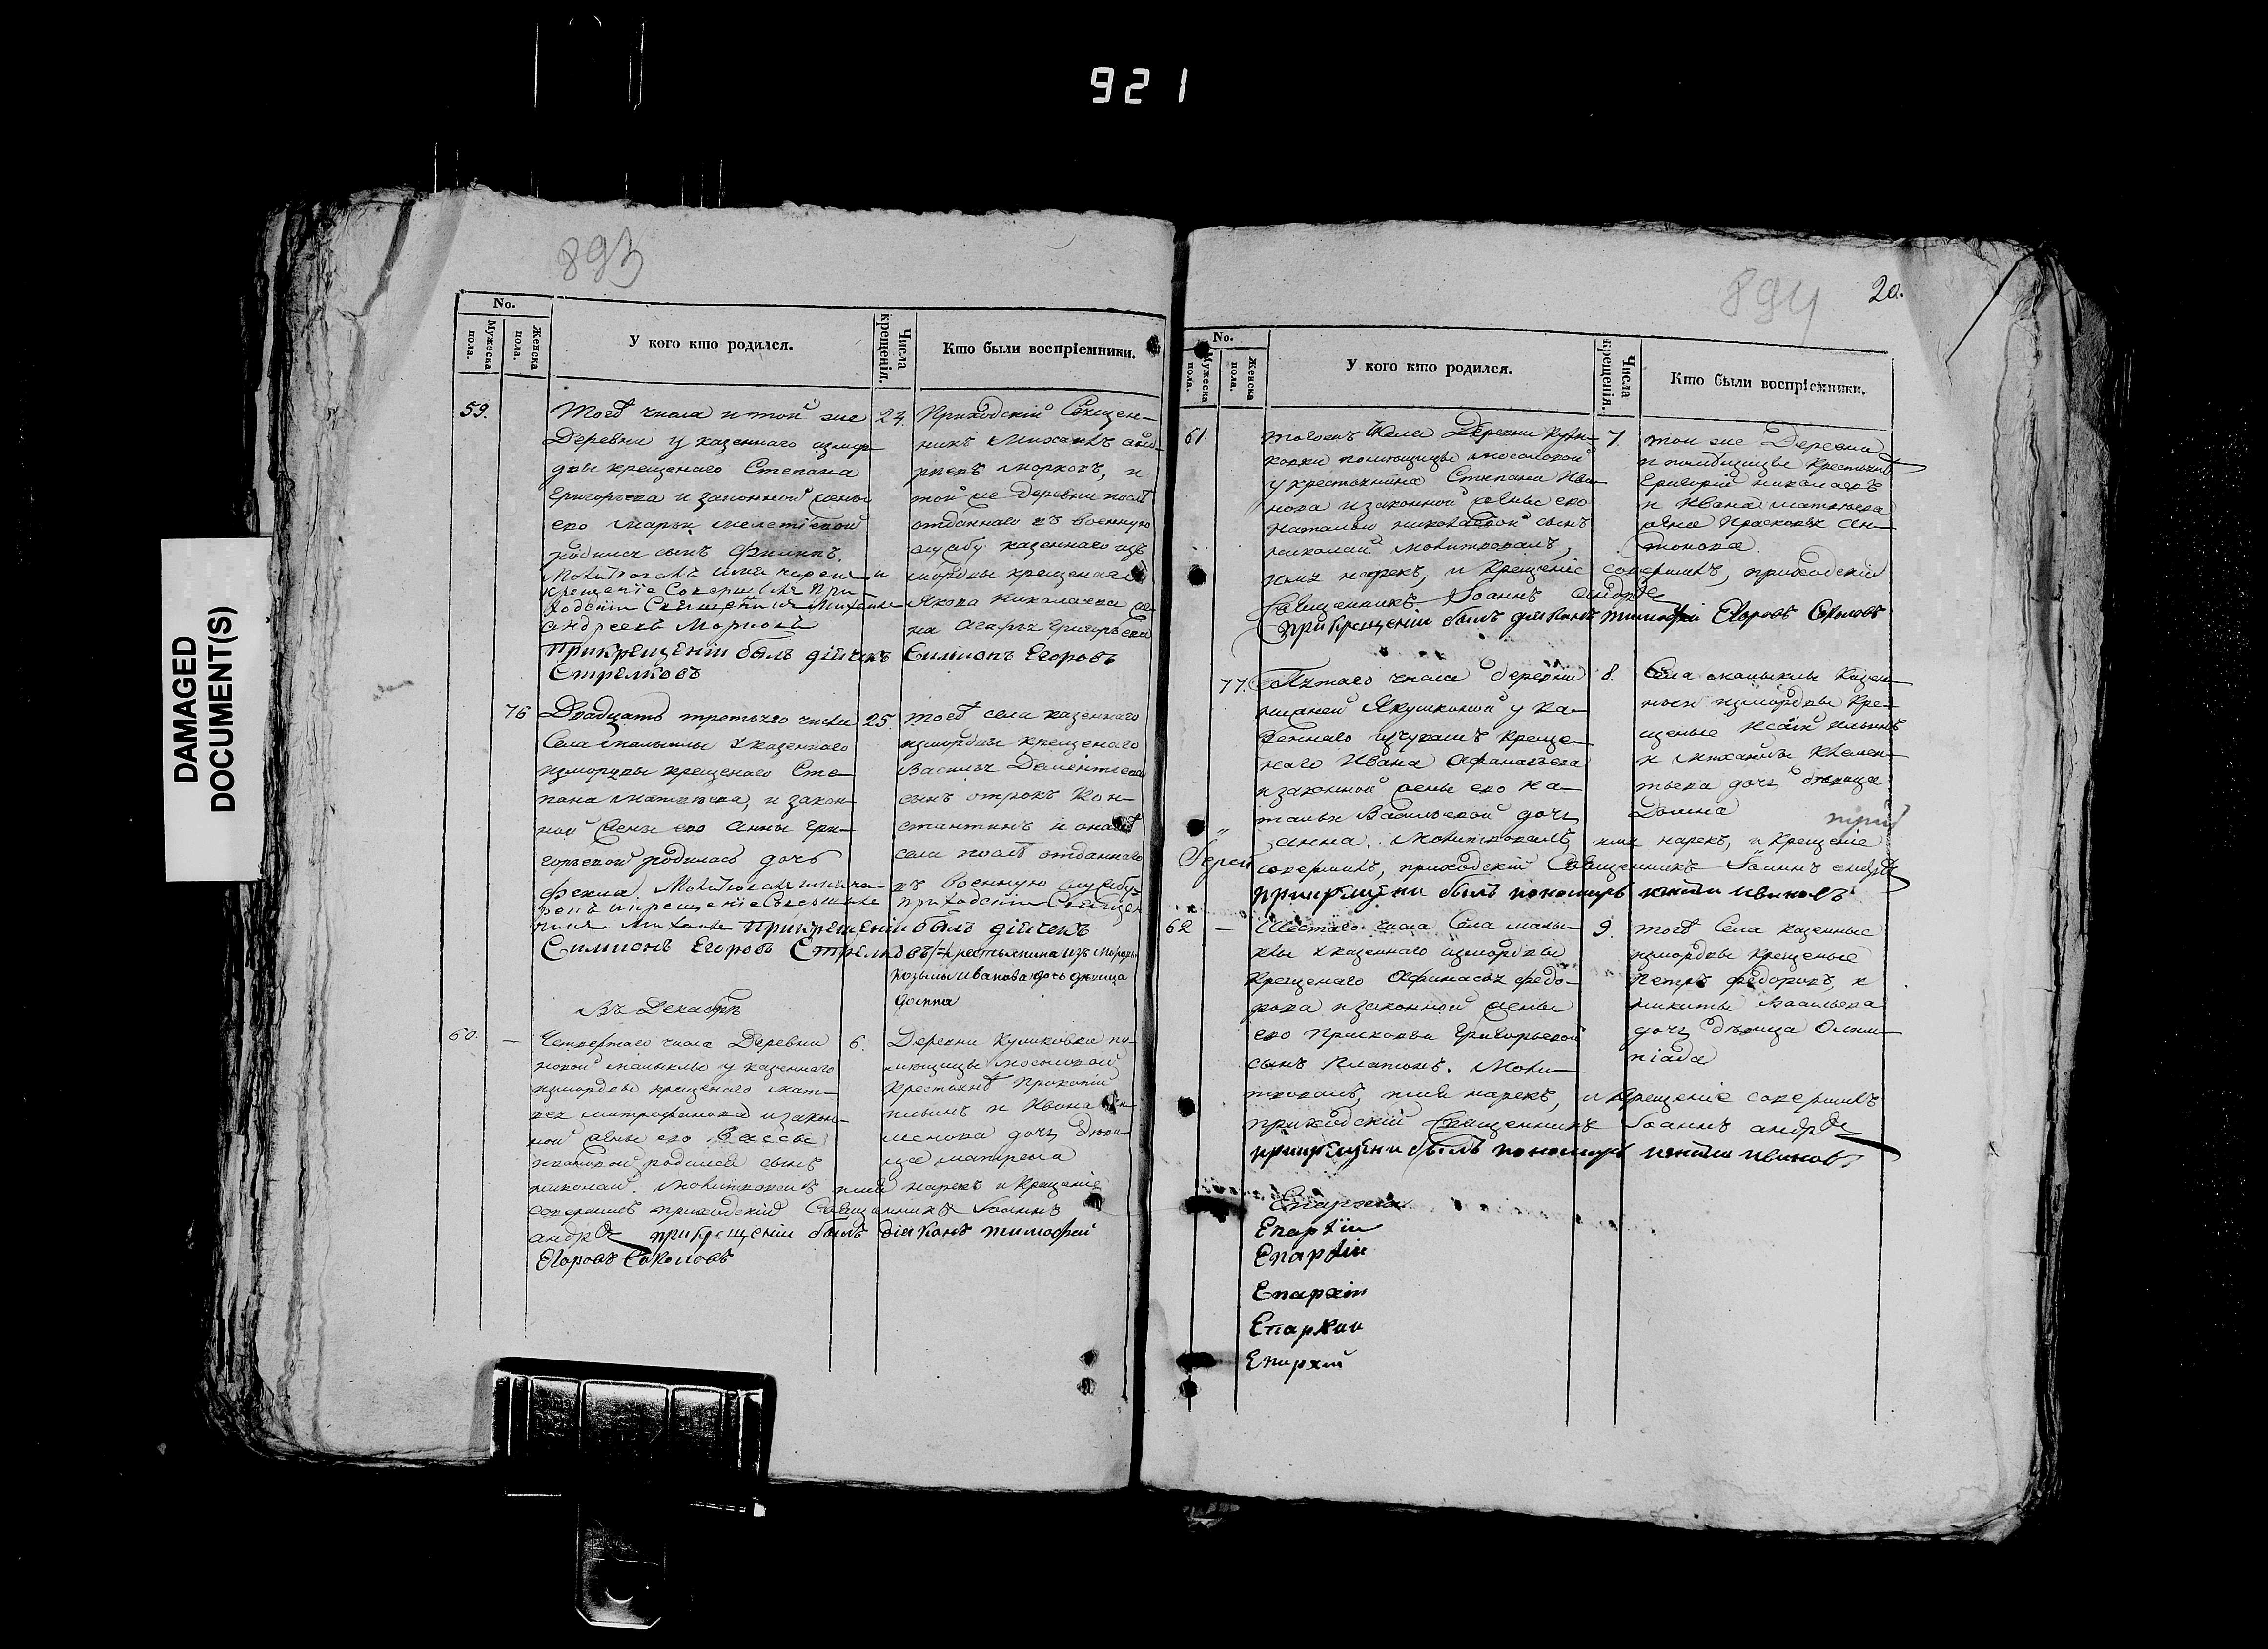 921
DAMAGED
DOCUMENT(S)
893
No.
Мужеска пола.
Женска пола.
У кого кто родился.
Числа крещенія.
Кто были воспріемники.
59.
Тогѡ числа и той же
Деревни у казеннаго измор-
двы крещенаго Степана
Григорьева и законной жены
его Марьи Мелетіевой
родился сынъ Филипъ.
Молитвовалъ имя нарекъ и
крещеніе Совершилъ При-
ходскій Священникъ Михаилъ
Андреевъ Морковъ
При крещеніи былъ діячекъ Симионъ Егоровъ
Стрелковъ
24.
Приходскій Священ-
никъ Михаилъ Анд-
реевъ Морковъ, и
той же деревни послѣ
отданнаго въ военную
службу казеннаго изъ
мордвы крещенаго
Якова Николаева же-
на Агафья Григорьева
76
Двадцать третьяго числа
Села Малыклы у казеннаго
измордвы крещенаго Сте-
пана Матвѣева, и закон-
ной жены его Анны Гри-
горьевой родилась дочь
Фекла. Молитвовалъ имя на-
рекъ и крещеніе Совершилъ приходскій Священ
никъ Михаилъ При крещеніи былъ діячекъ
Симионъ Егоровъ Стрелковъ
25.
тогѡ села казеннаго
измордвы крещенаго
Василья Дементьева
сынъ отрокъ Кон-
стантинъ и онагѡ
села послѣ отданнаго
въ военную службу
крестьянина изъ мордвы
Козьмы Иванова дочь девица
Домна
Въ Декабрѣ
60.
—
Четвертаго числа Деревни
новой Малыклы у казеннаго
измордвы крещенаго Мат-
вея Митрофанова и закон-
ной жены его Вассы
Ивановой родился сынъ
Николай. Молитвовалъ имя нарекъ и крещеніе
совершилъ приходскій Священникъ Іоаннъ
Андре при крещеніи былъ діяконъ Тимофей
Егоровъ Соколовъ
6.
Деревни Куликовки по-
мещицы Мосоловой
Крестьянѣ Прокопій
Ильинъ и Ивана
дочь дѣви-
ца Матрена
894
20.
No.
Мужеска пола.
Женска пола.
У кого кто родился.
Числа крещенія.
Кто были воспріемники.
61.
числа Деревни Кули-
ковки помещицы Мосоловой
у крестьянина Степана Ива-
нова и законной жены его
Натальи Николаевой сынъ
Николай Молитвовалъ,
имя нарекъ, и Крещеніе совершилъ, приходскій
Священникъ Іоаннъ Андре
При Крещеніи былъ діяконъ Тимофей Егоровъ Соколовъ
7.
той же Деревни
и помѣщицы Крестьянѣ
Григорій Николаевъ
и Ивана Матвеева
жена Прасковья Ан-
тонова.
77.
Пятаго числа деревни
нижней Якушкиной у ка-
зеннаго изчувашъ креще-
наго Ивана Афанасьева
и законной жены его На-
тальи Васильевой дочь
Анна. Молитвовалъ имя нарекъ, и Крещеніе
совершилъ, приходскій Священникъ Іоаннъ Андре
Іерей
при крещени былъ пономарь ивановъ
8.
Села Малыклы Казен-
ныя измордвы Кре-
щеные Исай Ильинъ
и Михайлы Клемен-
тьева дочь девица
Домна
62
—
Шестаго числа Села малы-
клы у казеннаго измордвы
Крещенаго Афанасья Федо-
рова и законной жены
его Прасковьи Григорьевой
сынъ Платонъ. Моли-
твовалъ, имя нарекъ, и Крещеніе совершилъ
приходскій Священникъ Іоаннъ Андре
при крещени былъ пономарь ивановъ
9.
тогѡ Села казенные
измордвы крещеные
Петръ Федоровъ, и
Никиты Васильева
дочь дѣвица Олим-
піада
Епархіи
Епархіи
Епархіи
Епархіи
Епархіи
Епархіи